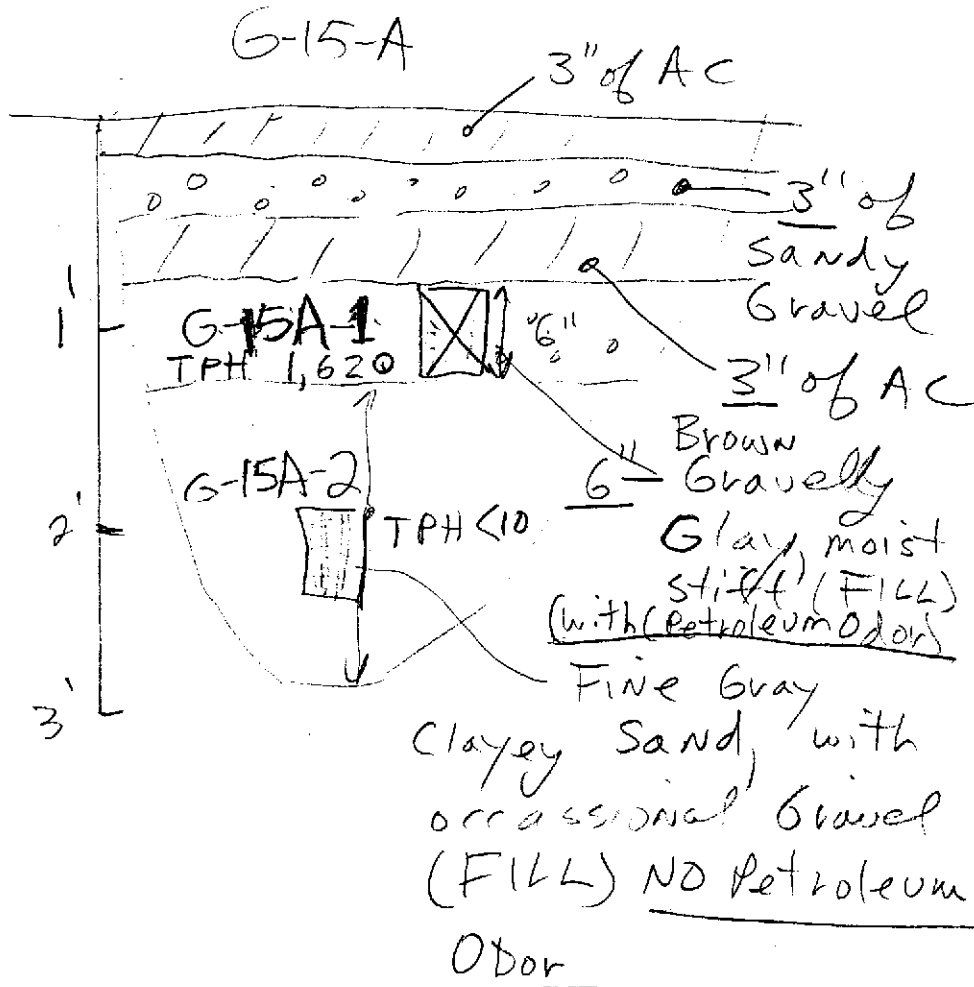 G-15-A
3" of AC
3" of
Sandy
Gravel
3" of AC
1'
1
G-15A-1
TPH 1,620
"6"
Brown
6" Gravelly
Glay, moist
stiff (FILL)
(with (Petroleum Odor)
G-15A-2
2'
TPH <10
3'
Fine Gray
Clayey Sand, with
occassional Gravel
(FILL) NO Petroleum
ODor